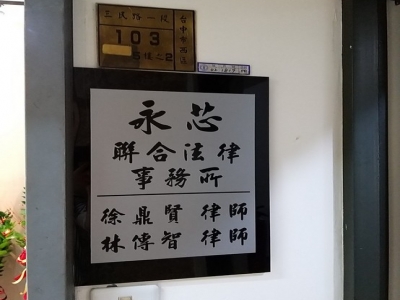 三民路一段
台中市西區
103
5樓之2
永芯
聯合法律
事務所
徐鼎賢 律師
林傳智 律師